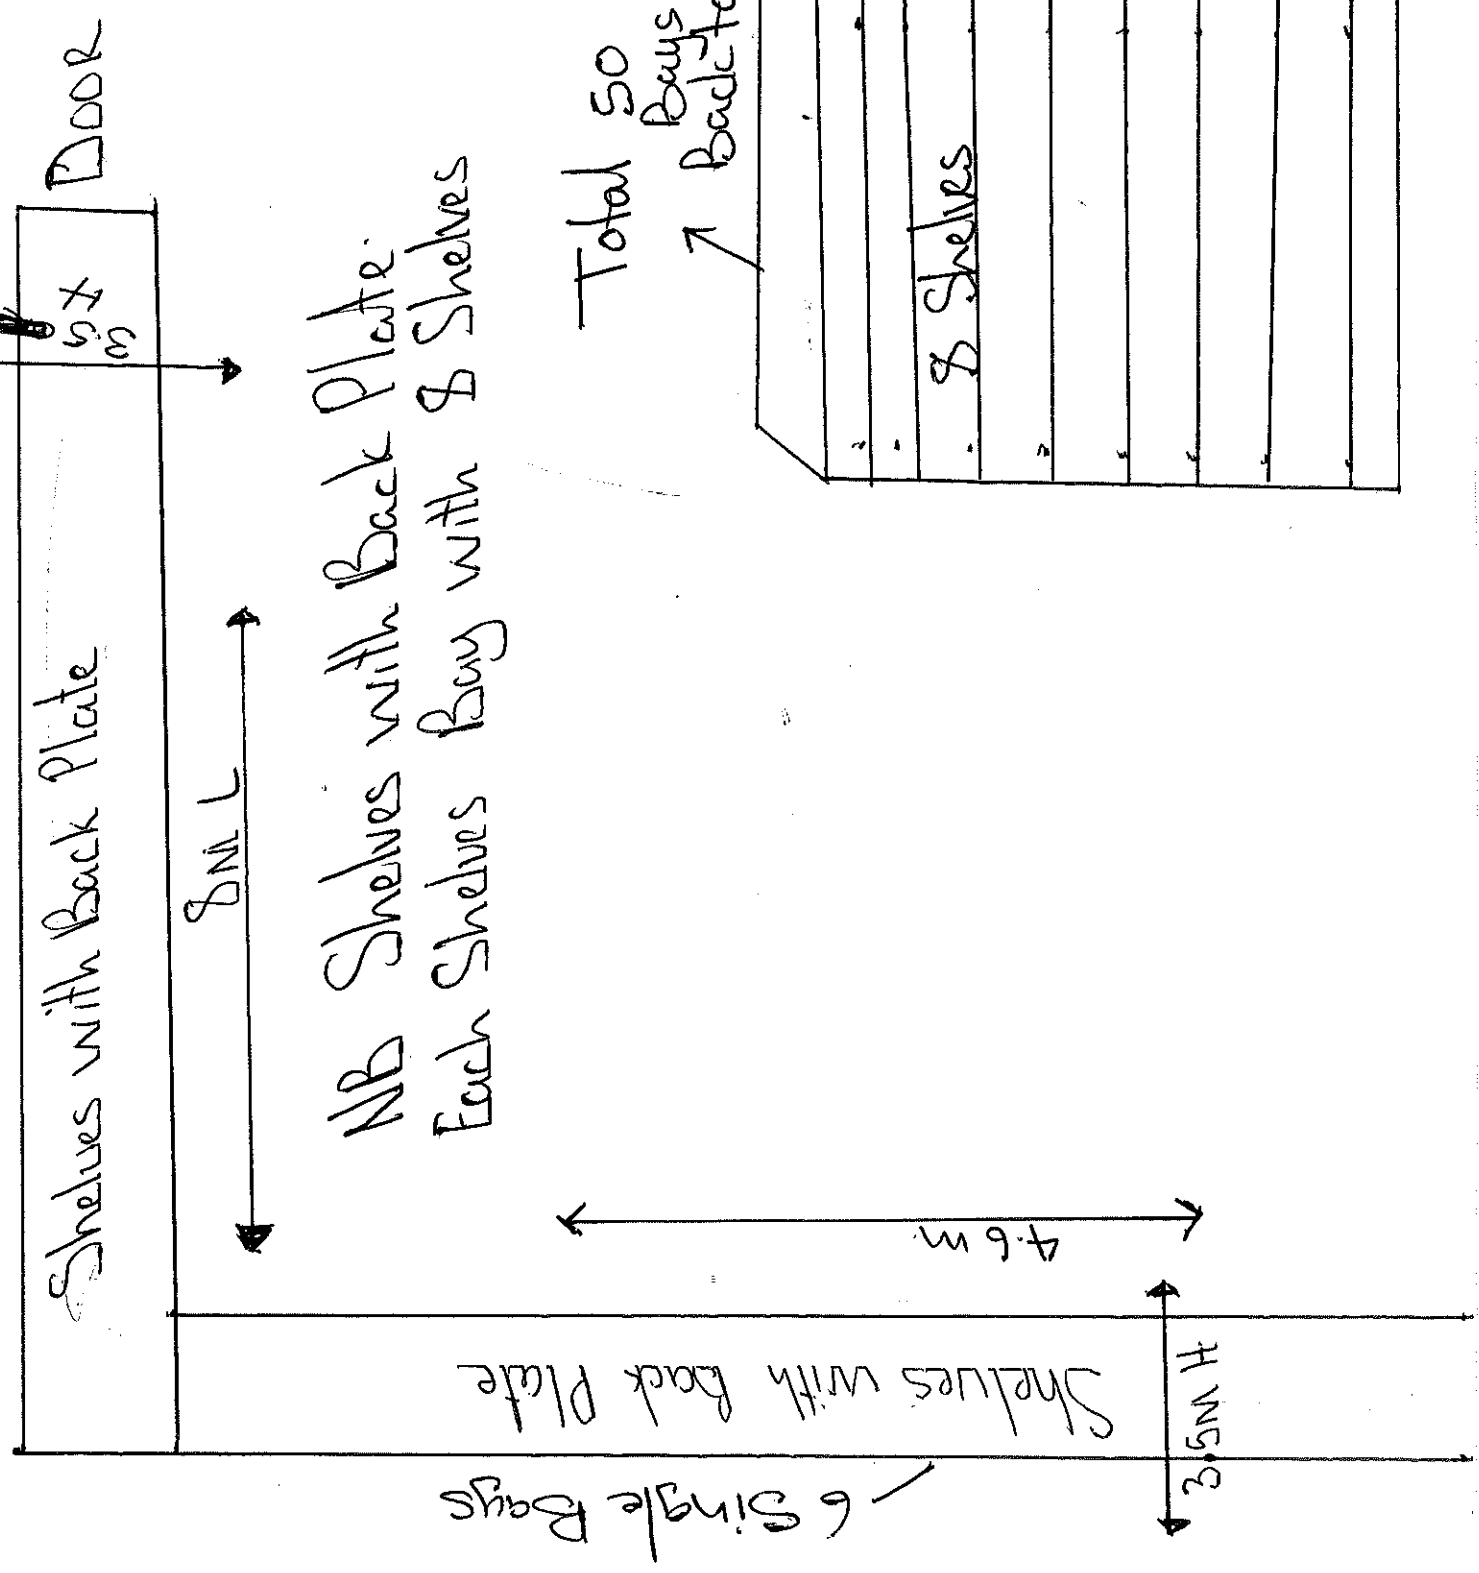 DOOR
Shelves with Back Plate
8M L
NB Shelves with Back Plate.
Each Shelves Bay with 8 Shelves
Total 50
Bays
Back-to
8 Shelves
4.6 m
Shelves with Back Plate
3.5M H
6 Single Bays